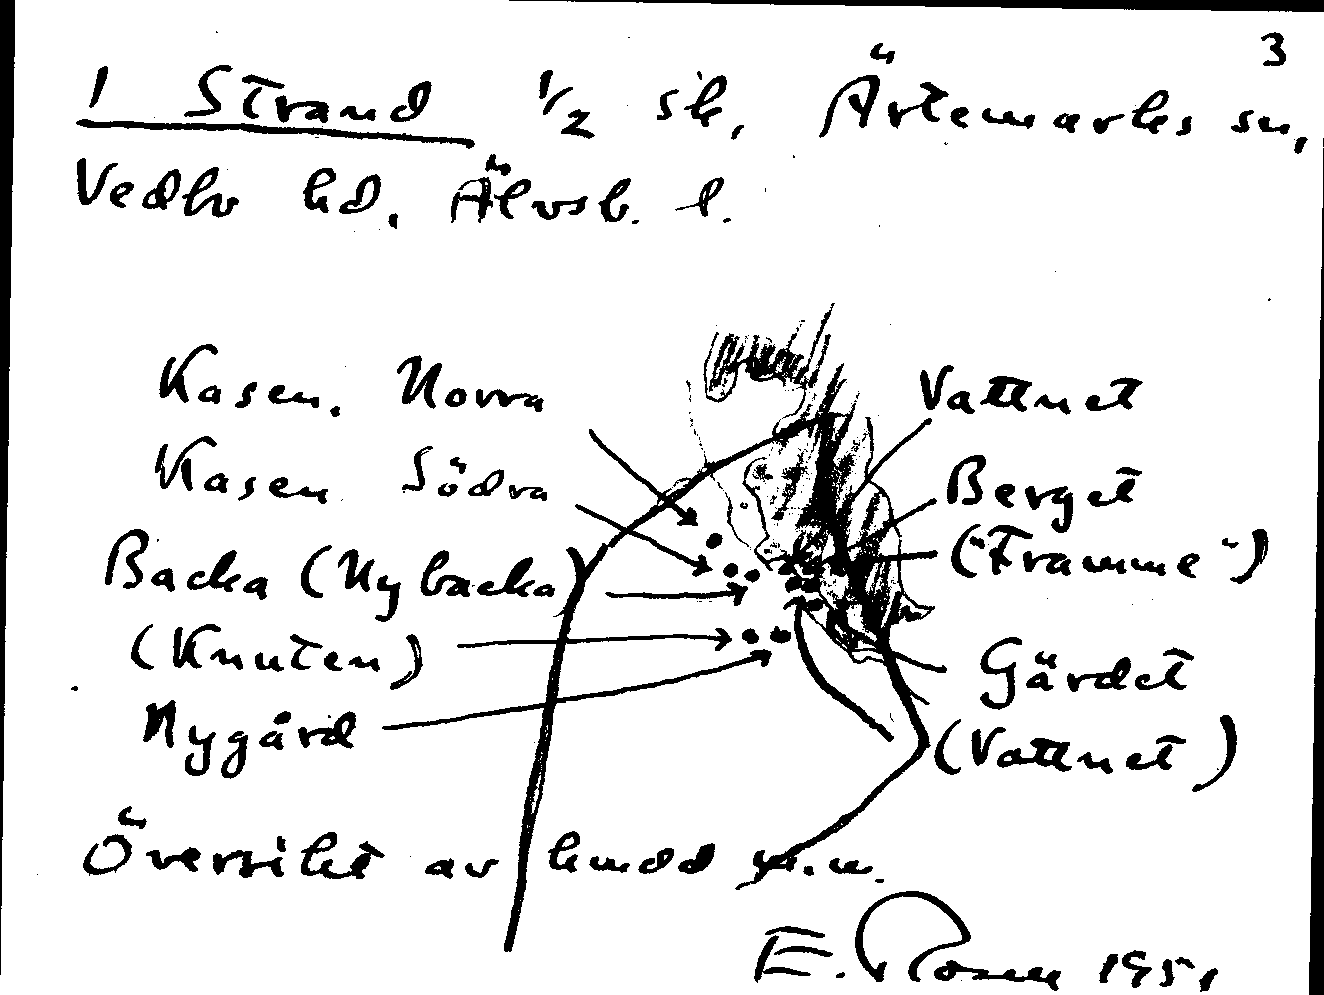 3
1 Strand 1/2 sk, Ärtemarks sn,
Vedbo hd. Älvsb. l.
Kasen. Norra
Kasen Södra
Backa (Nybacka)
(Knuten)
Nygård
Vattnet
Berget
("Framme")
Gärdet
(Vattnet)
Översikt av hmdd m.m.
E. Rosen 1951